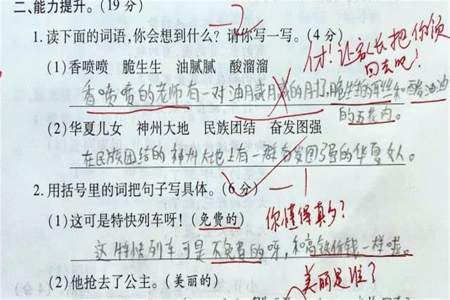 二、能力提升。(19分)
1.读下面的词语,你会想到什么?请你写一写。(4分)
(1)香喷喷 脆生生 油腻腻 酸溜溜
仔!让家长把你领回去吧!
香喷喷的老师有一对油腻腻的
的五花肉。
(2)华夏儿女 神州大地 民族团结 奋发图强
在民族团结的神州大地上有一群奋发图强的华夏女人。
2.用括号里的词把句子写具体。(6分)
(1)这可是特快列车呀!(免费的)
你懂得真多?
这特快列车可是不免费的呀,和高铁价钱一样啦。
(2)他抢去了公主。(美丽的)
美丽是谁?